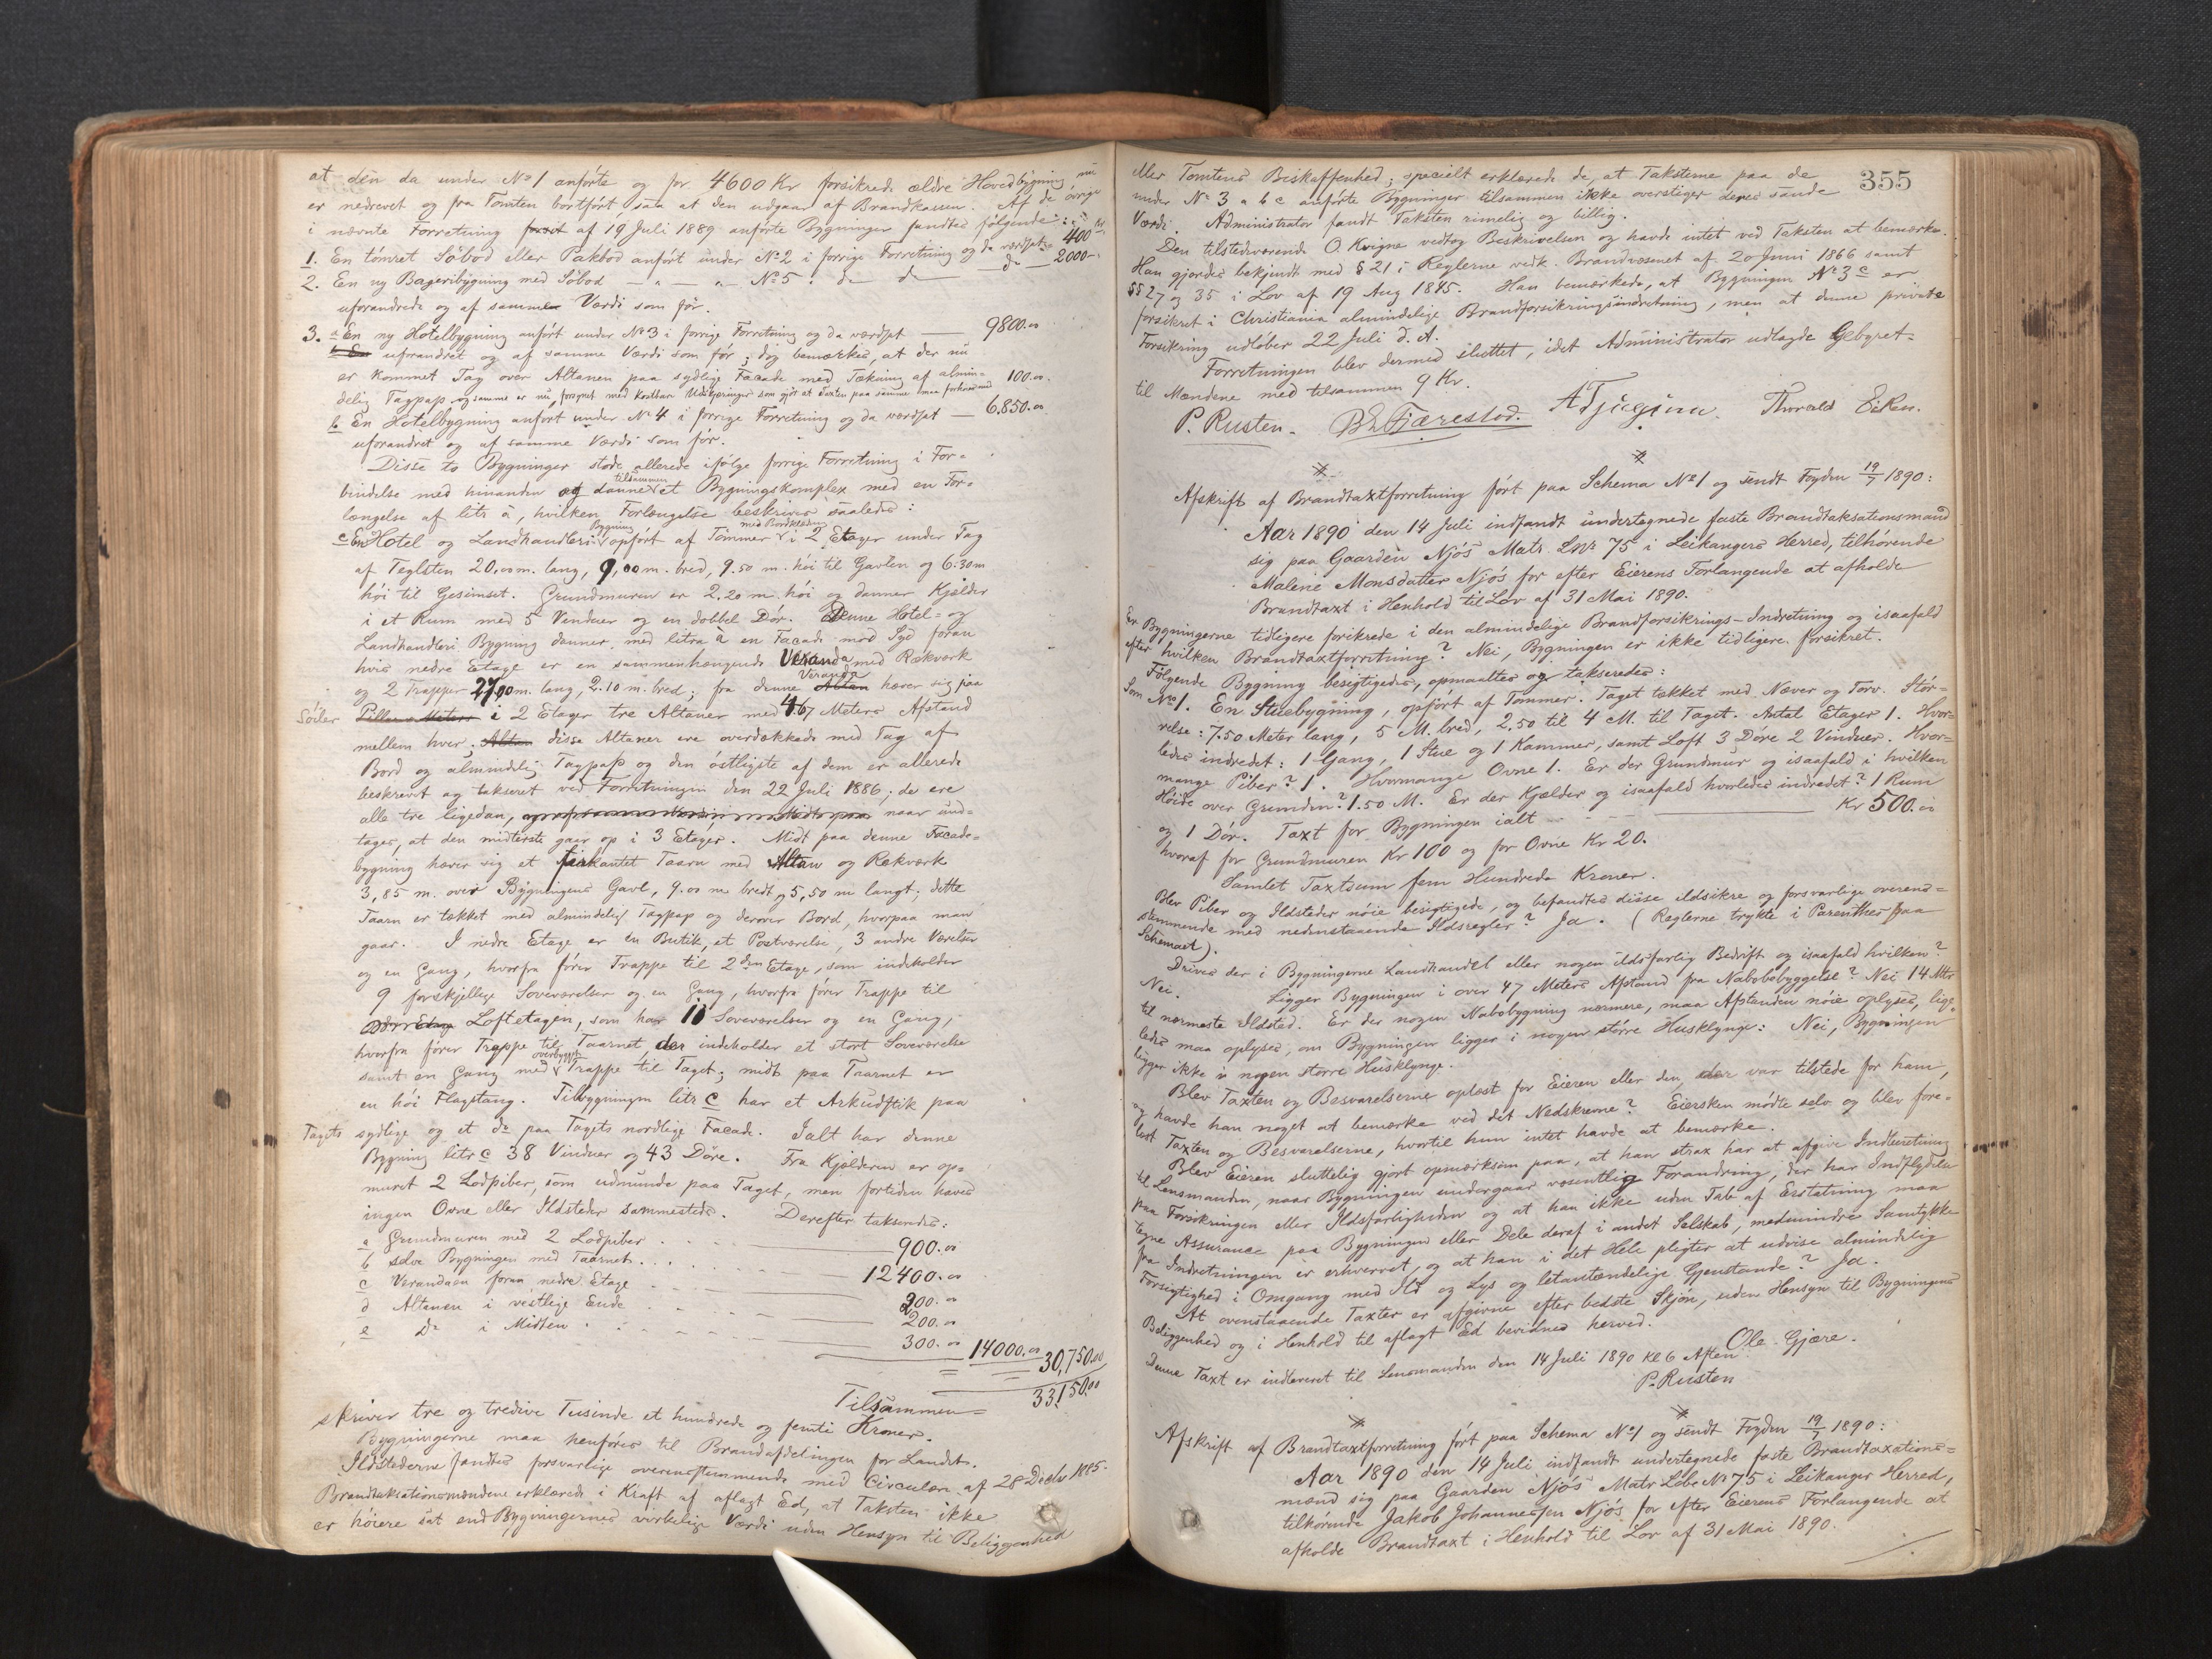 at den da under No 1 anförte og for 4600 Kr forsikrede ældre Hovedbygning nu
er nedrevet og fra Tomten bortfört, saa at den udgaar af Brandkassen. Af de övrige
i nævnte Forretning af 19 Juli 1889 anförte Bygninger fandtes fölgende:
1. En tömret Söbod eller Pakbod anfört under No 2 i forrige Forretning og da værdsat 400
2. En ny Bageribygning med Söbod — " — " — No 5. do do do — 2000-
uforandrede og af samme Værdi som för.
3. a En ny Hotelbygning anfört under No 3 i forrige Forretning og da værdsat — 9800.00
uforandret og af samme Værdi som för; dog bemærkes, at der nu
er kommet Tag over Altanen paa sydlige Facade med Tækning af almin=
delig Tagpap og samme er nu forsynet med kostbar Udskjæringer som gjör at Taxten paa samme 100.00.
b En Hotelbygning anfört under No 4 i forrige Forretning og da værdsat — 6.850.00
uforandret og af samme Værdi som för.
Disse to Bygninger stode allerede ifölge forrige Forretning i For=
bindelse med hinanden og danne tilsammen et Bygningskomplex med en For=
længelse af litr a, hvilken Forlængelse beskrives saaledes:
c En Hotel og Landhandleri Bygning opfört af Tömmer med Bordklædning i 2 Etager under Tag
af Teglsten 20.00 m. lang, 9,00 m. bred, 9.50 m. höi til Gavlen og 6.30 m
höi til Gesimset. Grundmuren er 2.20 m. höi og danner Kjelder
i et Rum med 5 Vinduer og en dobbel Dör. Denne Hotel= og
Landhandleri Bygning danner med litra a en Facade mod Syd foran
hvis nedre Etage er en sammenhængende Veranda med Rekværk
og 2 Trapper 27,00 m. lang, 2.10 m. bred; fra denne Veranda hæver sig paa
Söiler i 2 Etager tre Altaner med 4.67 Meters Afstand
mellem hver; disse Altaner ere overdækkede med Tag af
Bord og almindelig Tagpap og den östligste af dem er allerede
beskrevet og takseret ved Forretningen den 22 Juli 1886; de ere
alle tre ligedan, naar und=
tages, at den midterste gaar op i 3 Etager. Midt paa denne Facade=
bygning hæver sig et firkantet Taarn med Altan og Rekværk
3,85 m. over Bygningens Gavl, 9.00 m bredt og 5,50 m langt; dette
Taarn er tækket med almindelig Tagpap og derover Bord, hvorpaa man
gaar. I nedre Etage er en Butik, et Postværelse, 3 andre Værelser
og en Gang, hvorfra förer Trappe til 2den Etage, som indeholder
9 forskjellige Soveværelser og en Gang, hvorfra förer Trappe til
Loftetagen, som har 10 Soveværelser og en Gang,
hvorfra förer Trappe til Taarnet der indeholder et stort Soveværelse
samt en Gang med overbygget Trappe til Taget; midt paa Taarnet er
en höi Flagstang. Tilbygningen litr c har et Arkudstik paa
Tagets sydlige og et do paa Tagets nordlige Facade. Ialt har denne
Bygning litr c 38 Vinduer og 43 Döre. Fra Kjelderen er op=
muret 2 Lodpiber, som udmunde paa Taget, men fortiden haves
ingen Ovne eller Ildsteder sammesteds. Derefter takseredes:
a Grundmuren med 2 Lodpiber — 900.00
b selve Bygningen med Taarnet — 12400.00
c Verandaen foran nedre Etage — 200.00
d Altanen i vestlige Ende — 200.00
e Do i Midten — 300.00 14000.00 30,750.00
Tilsammen = 33150.00
skriver tre og tredive Tusinde et hundrede og femti Kroner.
Bygningerne maa henföres til Brandafdelingen for Landet.
Ildstederne fandtes forsvarlige overensstemmende med Circulær af 28 Decbr 1885.
Brandtaksationsmændene erklærede i Kraft af aflagt Ed, at Taksten ikke
er höiere sat end Bygningernes virkelige Værdi uden Hensyn til Beliggenhed
355
eller Tomtens Beskaffenhed; specielt erklærede de, at Taksterne paa de
under No 3 a b c anförte Bygninger tilsammen ikke overstiger deres sande
Værdi. Administrator fandt Taksten rimelig og billig.
Den tilstedeværende O. Kvigne vedtog Beskrivelsen og havde intet ved Taksten at bemærke.
Han gjordes bekjendt med § 21 i Reglerne vedk. Brandvæsenet af 20 Juni 1866 samt
§§ 27 og 35 i Lov af 19 Aug 1845. Han bemærkede, at Bygningen No 3 c er
forsikret i Christiania almindelige Brandforsikringsindretning, men at denne private
Forsikring udlöber 22 Juli d. A.
Forretningen blev dermed sluttet, idet Administrator udlagde Gebyret
til Mændene med tilsammen 9 Kr.
P. Rusten. Thorald Eiken.
Afskrift af Brandtaxtforretning fört paa Schema No 1 og sendt Fogden 19/7 1890:
Aar 1890 den 14 Juli indfandt undertegnede faste Brandtaksationsmænd
sig paa Gaarden Njös Matr. Lnr 75 i Leikangers Herred, tilhörende
Malene Monsdatter Njös for efter Eierens Forlangende at afholde
Brandtaxt i Henhold til Lov af 31 Mai 1890.
Er Bygningerne tidligere forsikrede i den almindelige Brandforsikrings-Indretning og isaafald
efter hvilken Brandtaxtforretning? Nei, Bygningen er ikke tidligere forsikret.
Fölgende Bygning besigtigedes, opmaaltes og takseredes:
Som No 1. En Stuebygning, opfört af Tömmer. Taget tækket med Næver og Torv. Stör=
relse: 7.50 Meter lang, 5 M. bred, 2,50 til 4 M. til Taget. Antal Etager 1. Hvor=
ledes indredet: 1 Gang, 1 Stue og 1 Kammer, samt Loft 3 Döre 2 Vinduer. Hvor=
mange Piber? 1. Hvormange Ovne 1. Er der Grundmur og isaafald i hvilken
Höide over Grunden? 1.50 M. Er der Kjælder og isaafald hvorledes indredet? 1 Rum
og 1 Dör. Taxt for Bygningen ialt — Kr 500.00
hvoraf for Grundmuren Kr 100 og for Ovne Kr 20.
Samlet Taxtsum fem Hundrede Kroner.
Blev Piber og Ildsteder nöie besigtigede, og befandtes disse ildsikre og forsvarlige overens=
stemmende med nedenstaaende Ildsregler? Ja. (Reglerne trykte i Parenthes paa
Schemaet).
Drives der i Bygningerne Landhandel eller nogen ildsfarlig Bedrift og isaafald hvilken?
Nei. Ligger Bygningen i over 47 Meters Afstand fra Nabobebyggelse? Nei 14 Mtr
til nærmeste Ildsted. Er der nogen Nabobygning nærmere, maa Afstanden nöie oplyses, lige=
ledes maa oplyses, om Bygningen ligger i nogen större Husklynge: Nei, Bygningen
ligger ikke i nogen större Husklynge.
Blev Taxten og Besvarelserne oplæst for Eieren eller den, der var tilstede for ham,
og havde han noget at bemærke ved det Nedskrevne? Eiersken mödte selv og blev fore=
læst Taxten og Besvarelserne, hvortil hun intet havde at bemærke.
Blev Eieren sluttelig gjort opmærksom paa, at han strax har at afgive Indberetning
til Lensmanden, naar Bygningen undergaar væsentlig Forandring, der har Indflydelse
paa Forsikringen eller Ildsfarligheden og at han ikke uden Tab af Erstatning maa
tegne Assurance paa Bygningen eller Dele deraf i andet Selskab, medmindre Samtykke
fra Indretningen er erhvervet, og at han i det Hele pligter at udvise almindelig
Forsigtighed i Omgang med Ild og Lys og letantændelige Gjenstande? Ja.
At ovenstaaende Taxter er afgivne efter bedste Skjön, uden Hensyn til Bygningens
Beliggenhed og i Henhold til aflagt Ed bevidnes herved.
Ole Gjære.
Denne Taxt er indleveret til Lensmanden den 14 Juli 1890 Kl 6 Aften
P. Rusten
Afskrift af Brandtaxtforretning fört paa Schema No 1 og sendt Fogden 19/7 1890:
Aar 1890 den 14 Juli indfandt undertegnede faste Brandtaxations=
mænd sig paa Gaarden Njös Matr Löbe No 75 i Leikanger Herred,
tilhörende Jakob Johannessen Njös for efter Eierens Forlangende at
afholde Brandtaxt i Henhold til Lov af 31 Mai 1890.